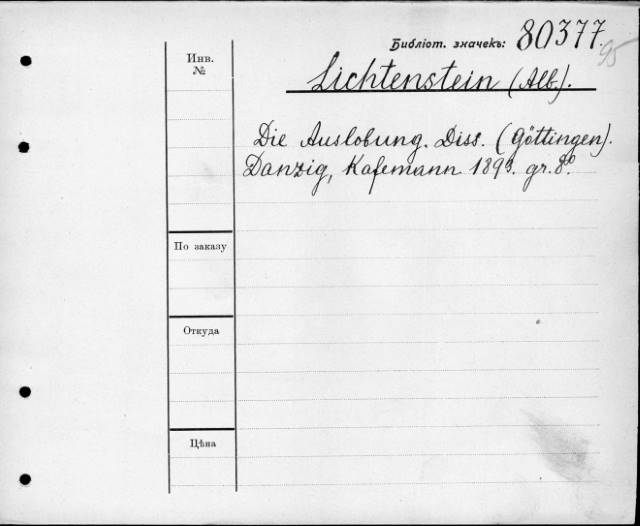 Библіот. значекъ: 80377.
95
Инв.
№
Lichtenstein (Alb.).
Die Auslobung. Diss. (Göttingen).
Danzig, Kafemann 1893. gr. 8°.
По заказу
Откуда
Цѣна